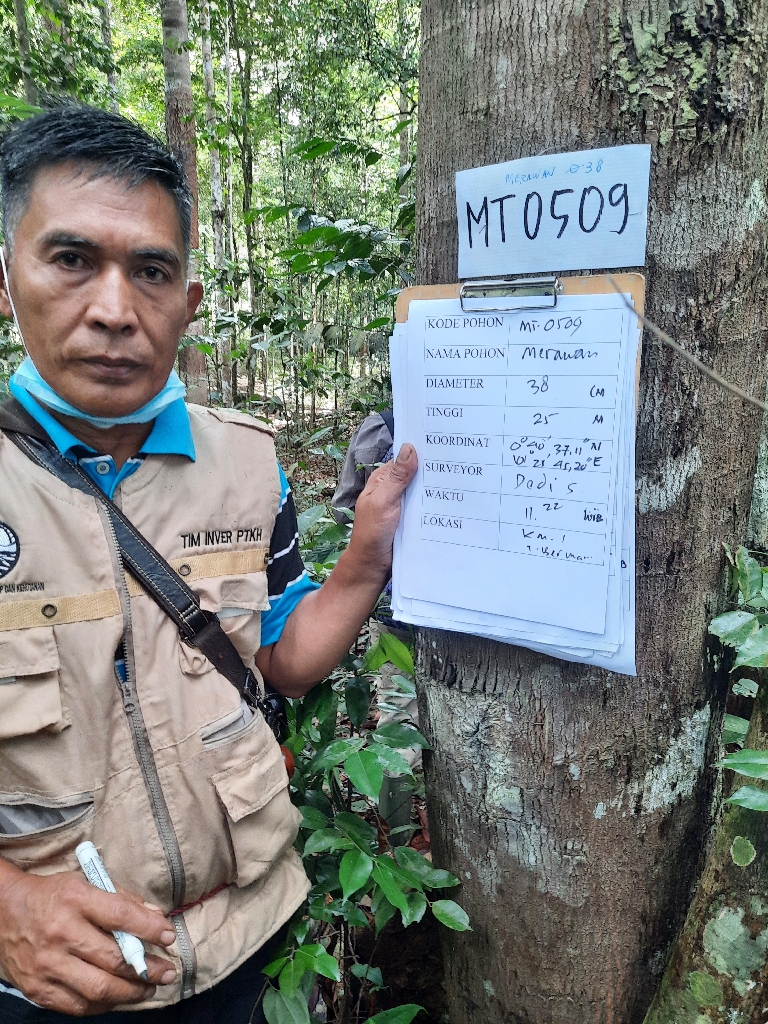 MERAWAN ⌀ 38
MT0509
KODE POHON MT-0509
NAMA POHON Merawan
DIAMETER 38 CM
TINGGI 25 M
KOORDINAT 0° 40', 37.11" N
21' 45,20" E
SURVEYOR Dodi S
WAKTU 11.22 WIB
LOKASI Km. 1
TIM INVER PTKH
DAN KEHUTANAN